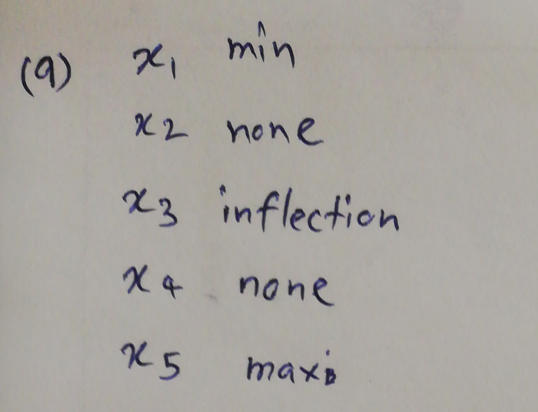 (9) x1 min
x2 none
x3 inflection
x4 none
x5 max